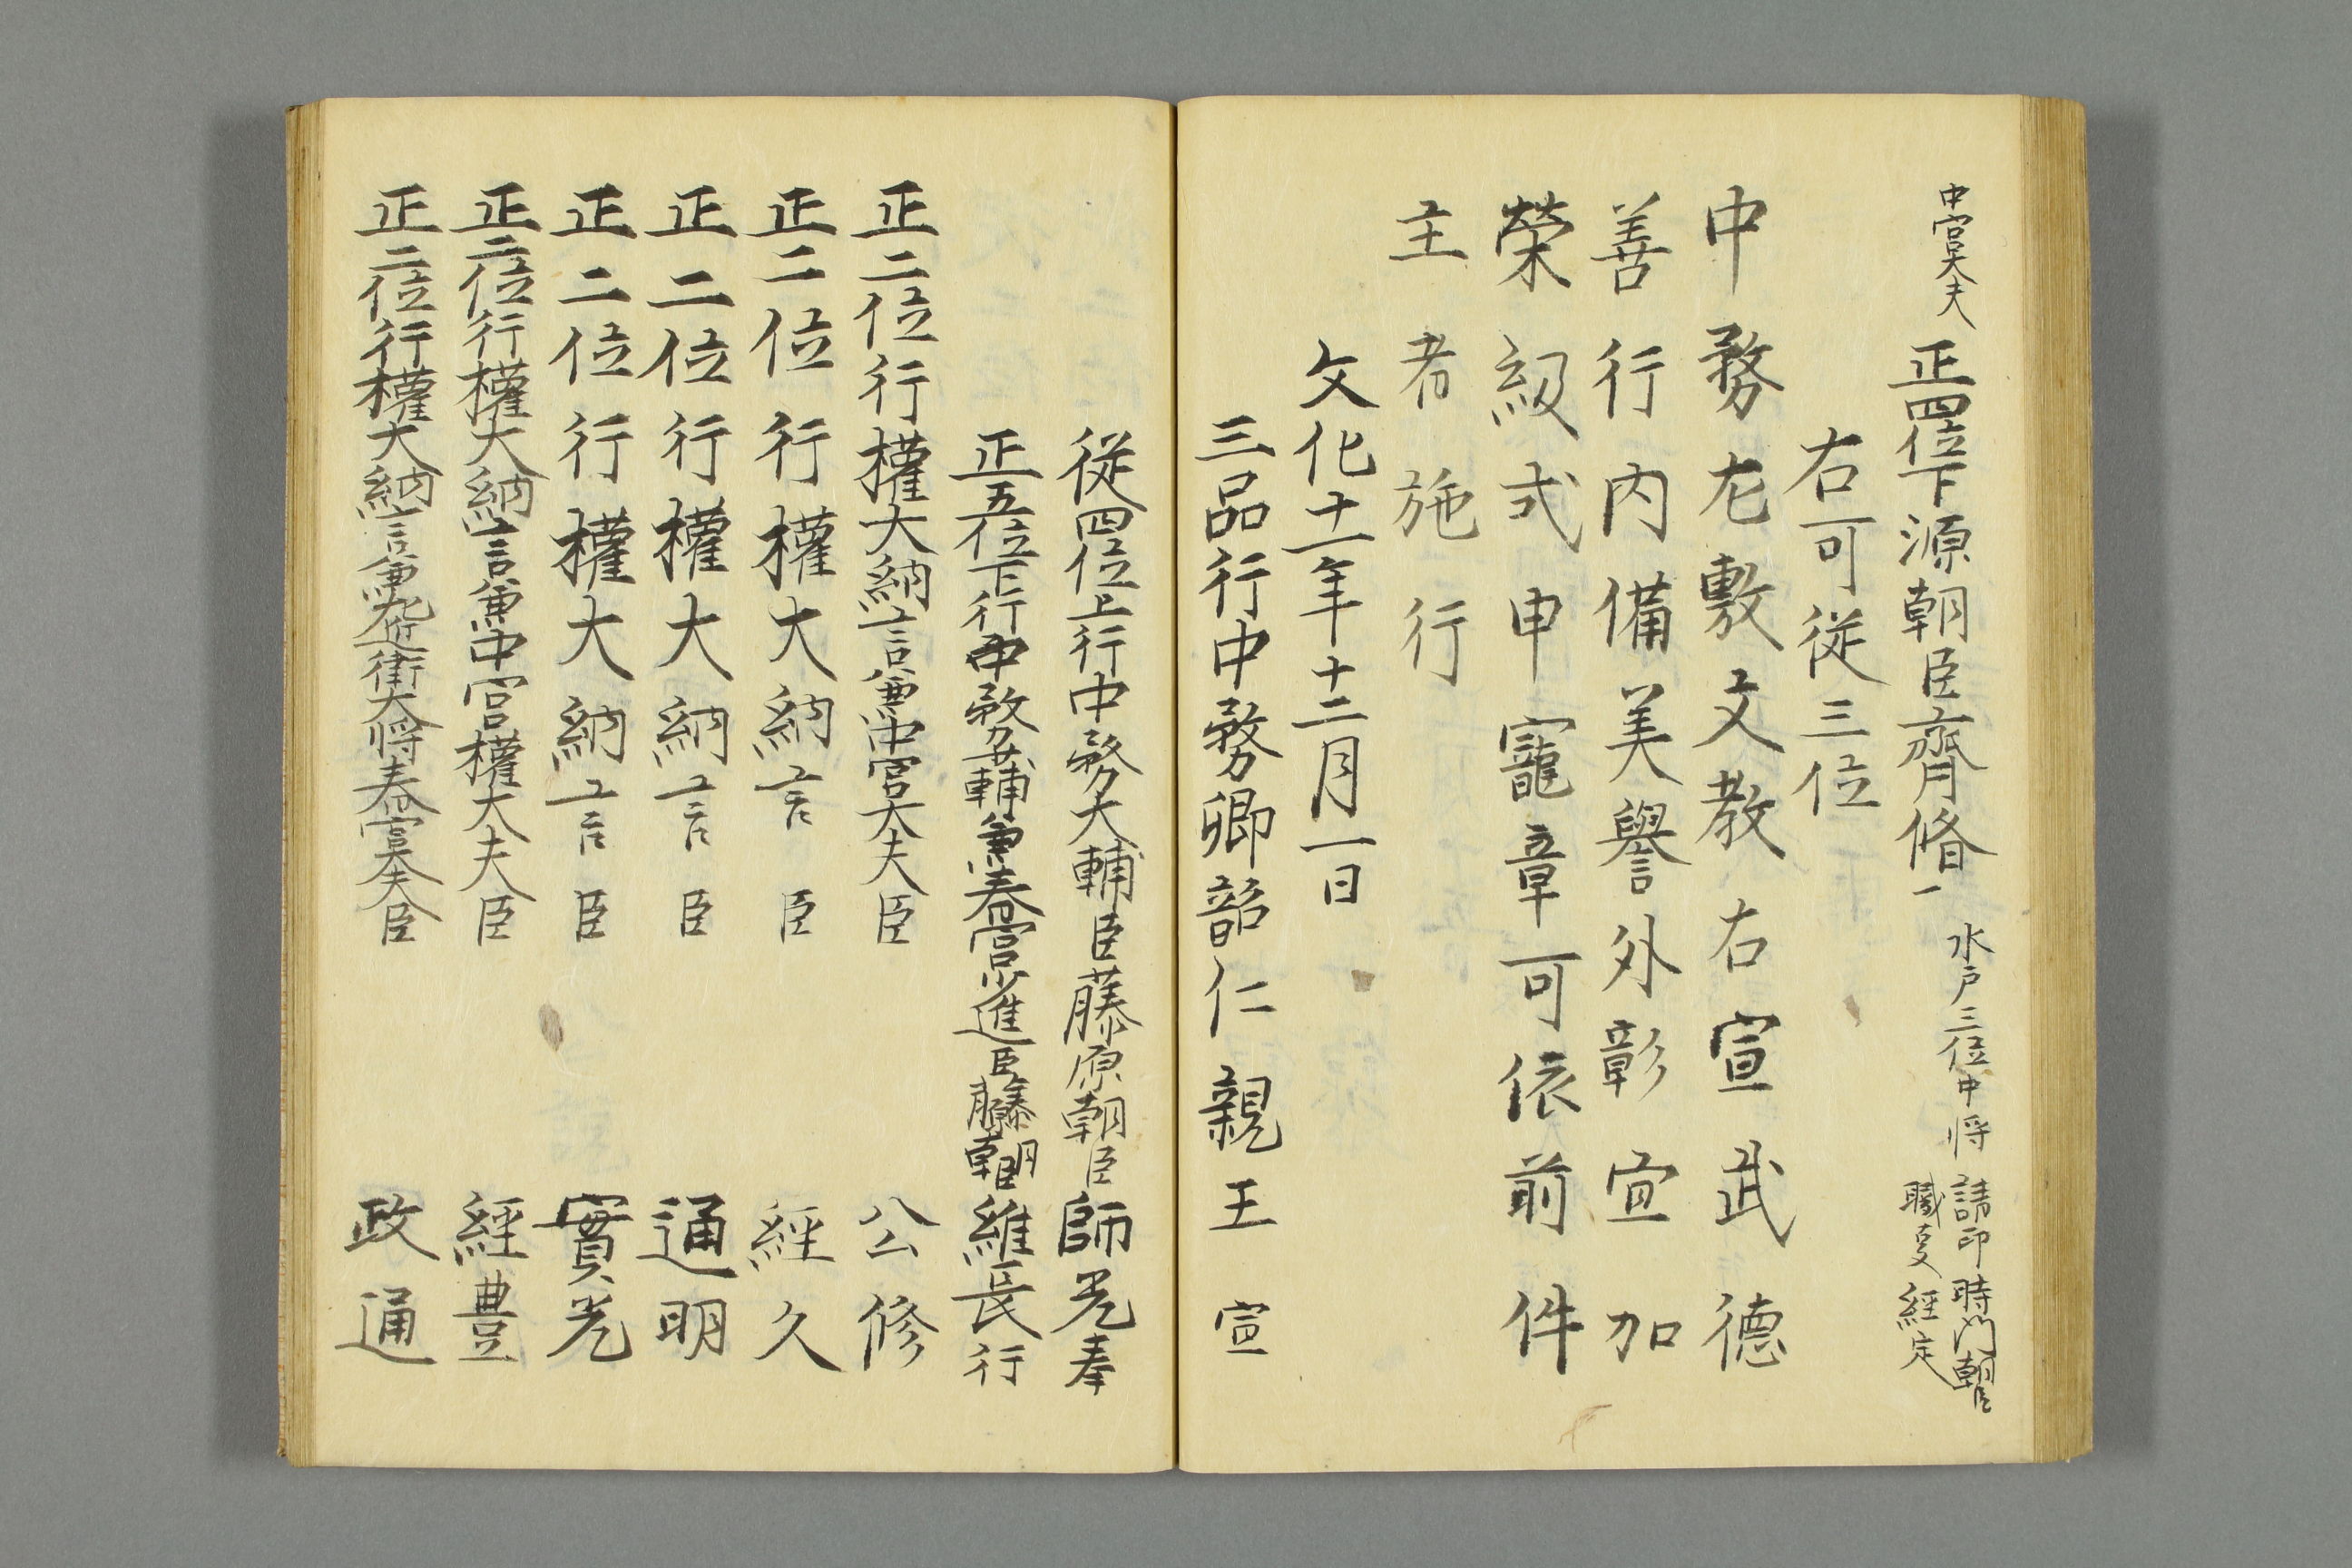 中宮大夫
正四位下源朝臣齊脩
水戸三位中将
請印時門朝臣
職夏経定
右可従三位
中務左敷文教右宣武德
善行内備美譽外彰宜加
榮級式申寵章可依前件
主者施行
文化十一年十二月一日
三品行中務卿韶仁親王宣
従四位上行中務大輔臣藤原朝臣師光奉
正五位下行中務少輔兼春宮少進臣藤原朝臣維長行
正二位行權大納言兼中宮大夫臣公修
正二位行權大納言臣經久
正二位行權大納言臣通明
正二位行權大納言臣實光
正二位行權大納言兼中宮權大夫臣經豊
正二位行權大納言兼左近衛大将春宮大夫臣政通